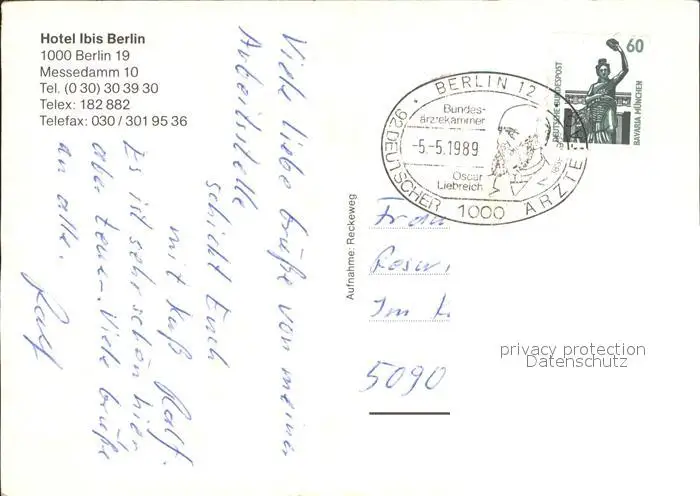 Hotel Ibis Berlin
1000 Berlin 19
Messedamm 10
Tel. (0 30) 30 39 30
Telex: 182 882
Telefax: 030 / 301 95 36
Viele liebe Grüße von meiner
Arbeitsstelle
schickt Euch
mit Kuß Ralf.
Es ist sehr schön hier
aber teuer. Viele Grüße
an alle.
Ralf
Aufnahme: Reckeweg
60
DEUTSCHE BUNDESPOST
BAVARIA MÜNCHEN
BERLIN 12
Bundes-
ärztekammer
-5.-5.1989
Oscar
Liebreich
92. DEUTSCHER ÄRZTETAG
1000
Frau
Im
5090
privacy protection
Datenschutz